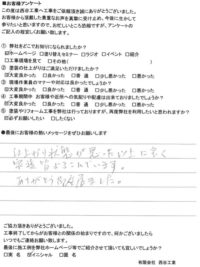 ■お客様アンケート
この度は西谷工業へ工事をご依頼頂き誠にありがとうございました。
お客様から頂戴した貴重なお声を真摯に受け止め、今後に生かして
参りたいと思いますので、お忙しいところ恐縮ですが、アンケートの
ご記入の程宜しくお願い致します。
① 弊社をどこでお知りになられましたか？
ホームページ □塗り替えセミナー □ラジオ □イベント □紹介
□工事現場を見て □その他（ ）
② 塗装の仕上がりはご満足いただけましたか？
大変良かった □良かった □普通 □少し悪かった □悪かった
③ 現場作業員のマナーや対応は良かったでしょうか？
大変良かった □良かった □普通 □少し悪かった □悪かった
④ 工事期間中 お客様や近所への気配りや配慮は出来ておりましたでしょうか？
大変良かった □良かった □普通 □少し悪かった □悪かった
⑤ 塗装やリフォーム工事を弊社は行っておりますが、再度弊社を利用したいと思われますか？
□大変思う 思う □普通 □少し思わない □思わない
●最後にお客様の熱いメッセージをぜひお願いします
仕上がり状態が思った以上に良く
家族皆よろこんでいます。
ありがとうございました。
ご協力頂きありがとうございました。
工事完了してからがお客様との関係の始まりですので、何かございましたら
いつでもご連絡お願い致します。
最後に施工例を弊社ホームページ等でご紹介させて頂いても宜しいでしょうか？
□実名 イニシャル □匿名
有限会社 西谷工業